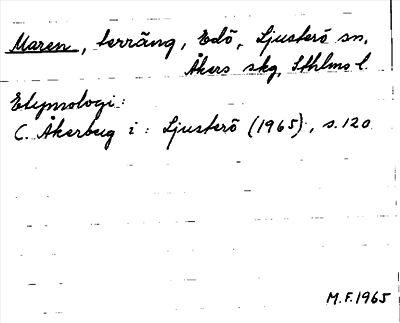 Maren, terräng, Edö, Ljusterö sn,
Åkers skg, Sthlms l.
Etymologi:
C. Åkerberg i: Ljusterö (1965), s. 120
M.F. 1965